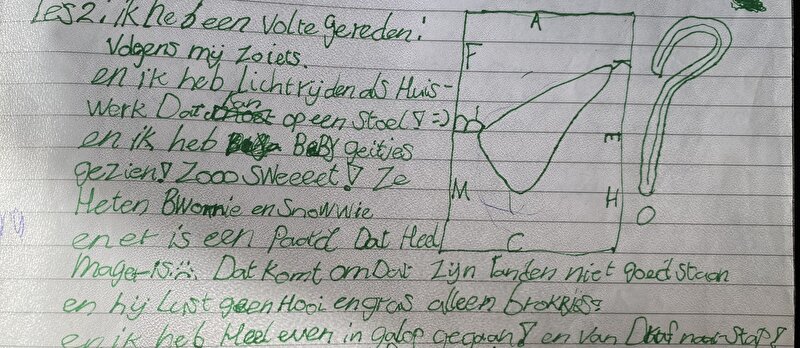 Les 2. ik heb een Volte gereden:
Volgens mij zoiets.
en ik heb Lichtrijden als Huis-
werk Dat kan op een stoel! =)
en ik heb BaBy geitjes
gezien! Zooo Sweeeet! Ze
Heten Bwonnie en Snowwie
en er is een Paard Dat Heel
Mager is :(. Dat komt omDat zijn tanden niet goed staan
en hij Lust geen Hooi en gras alleen brokjes:
en ik heb Heel even in galop gegaan! en van Draf naar Stap!
A
F
B
E
M
H
C
?